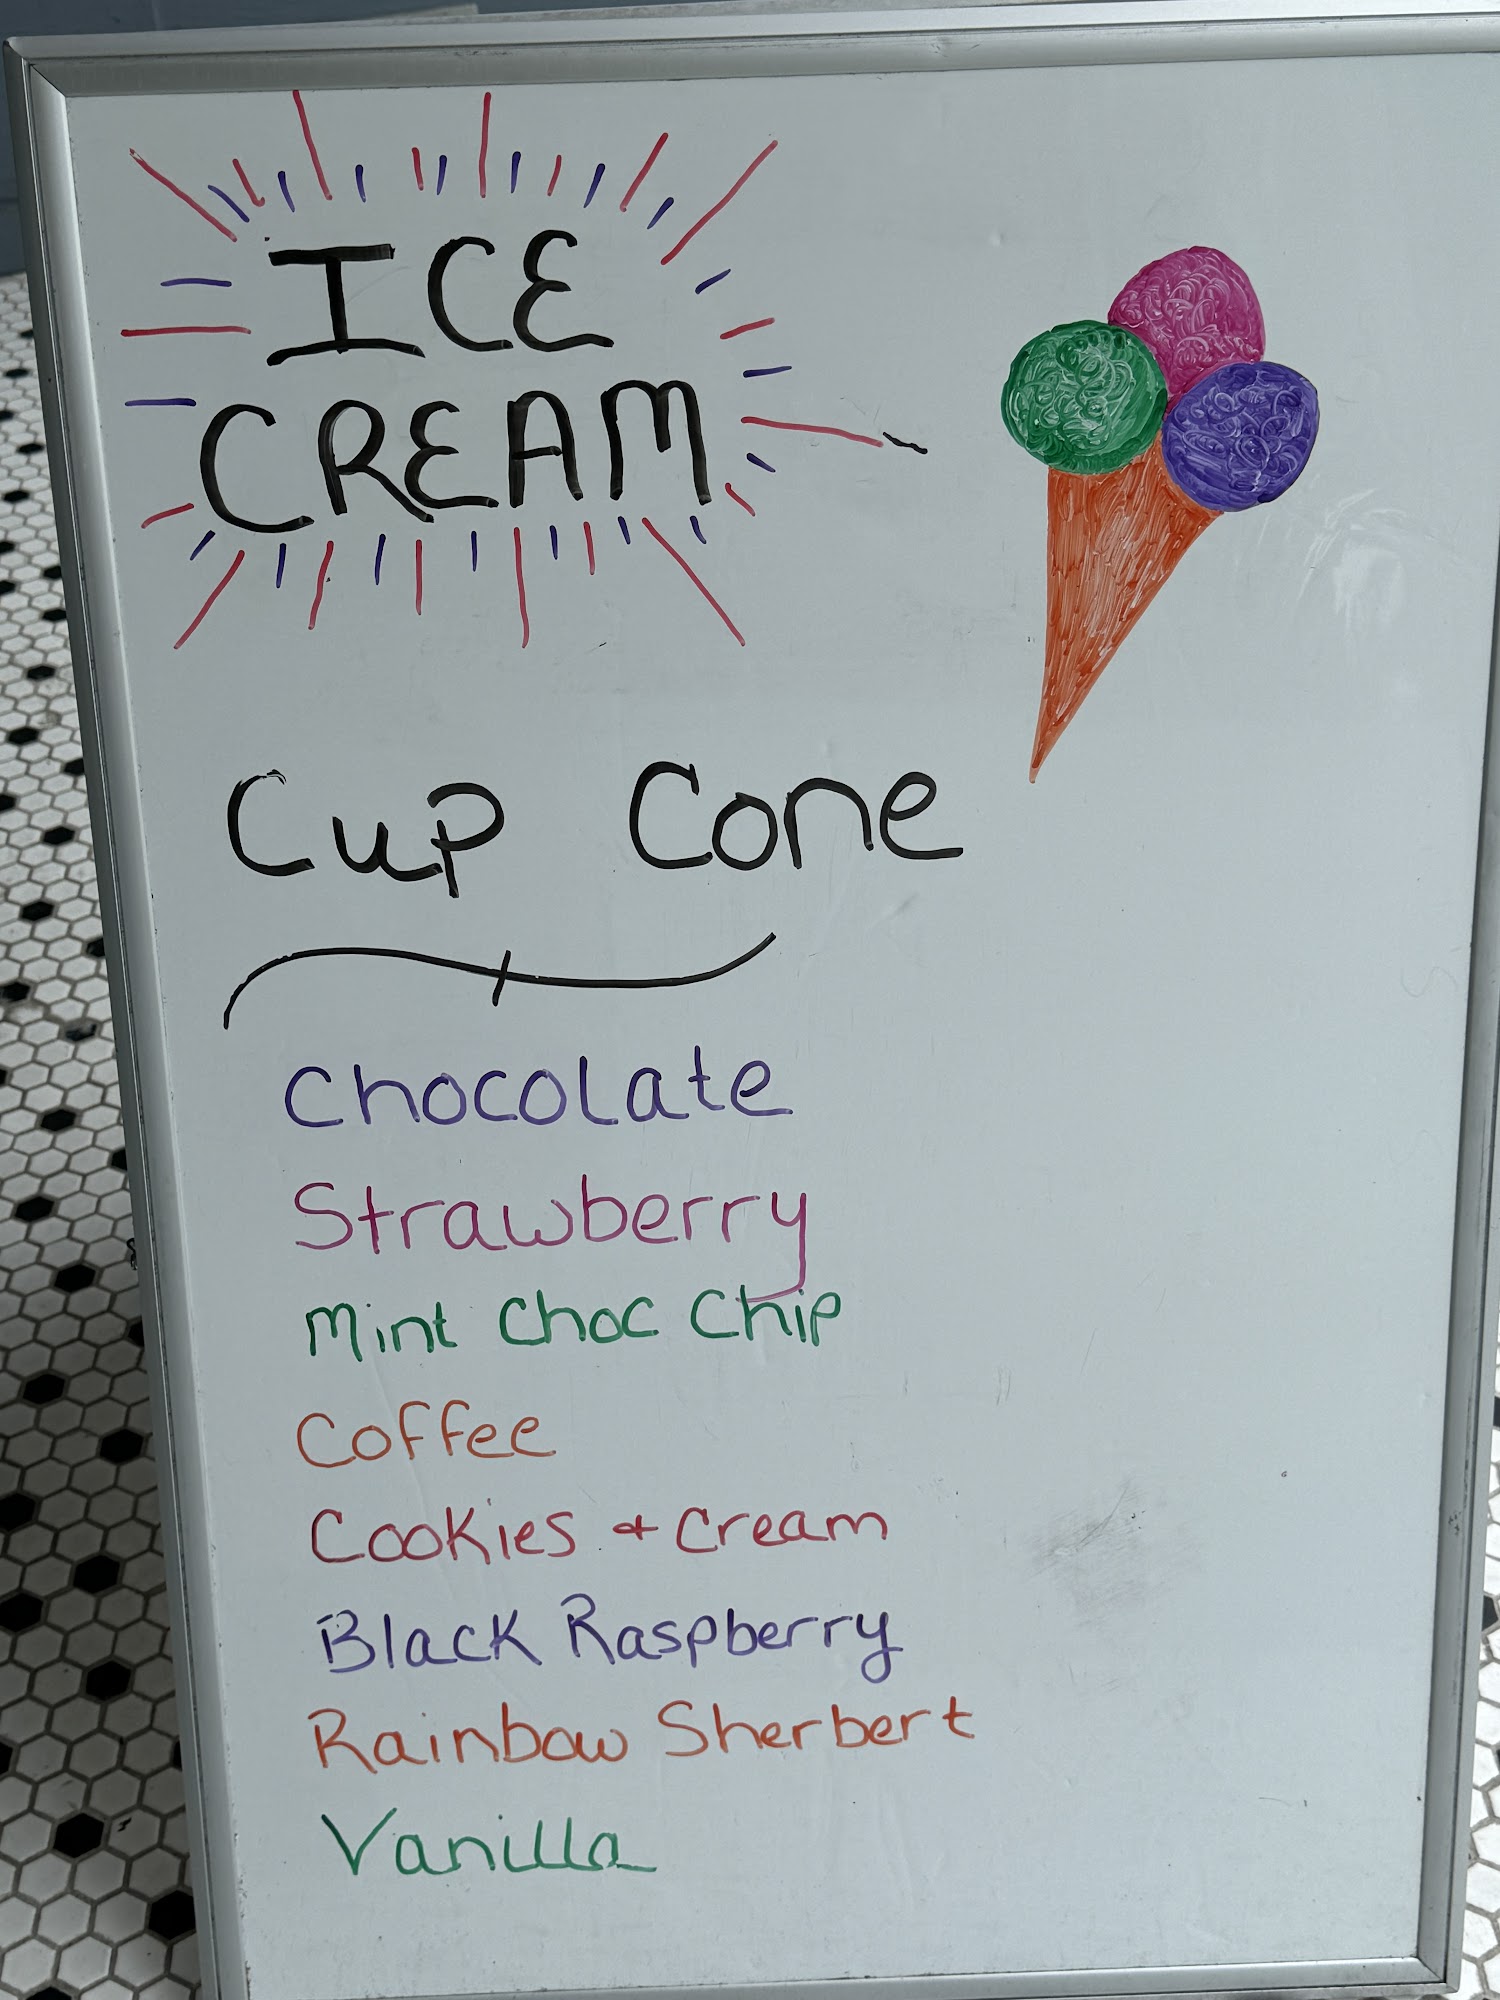 ICE
CREAM
Cup Cone
Chocolate
Strawberry
Mint Choc Chip
Coffee
Cookies + Cream
Black Raspberry
Rainbow Sherbert
Vanilla